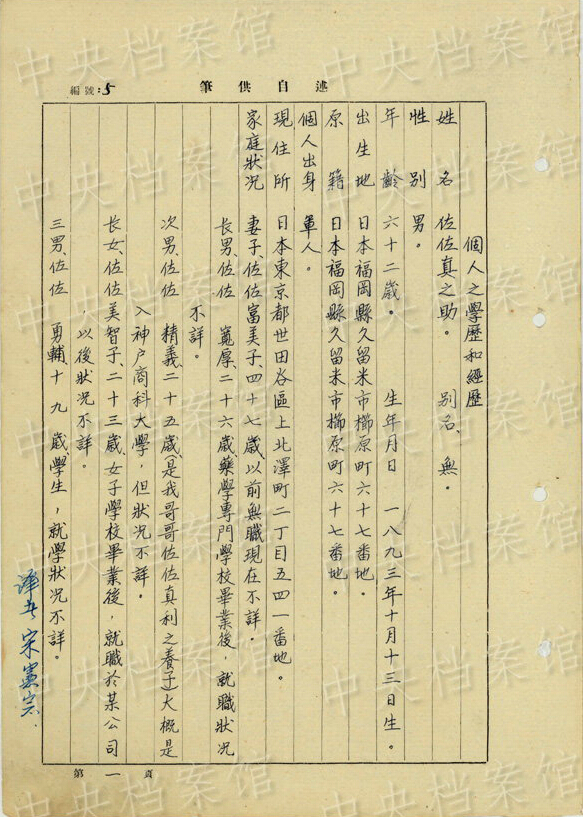 筆供自述
編號:5
個人之學歷和經歷
姓名 佐佐真之助。 别名、無。
性别 男。
年齡 六十二歲。 生年月日 一八九三年十月十三日生。
出生地 日本福岡縣久留米市櫛原町六十七番地。
原籍 日本福岡縣久留米市櫛原町六十七番地。
個人出身 軍人。
現住所 日本東京都世田谷區上北澤町二丁目五四一番地。
家庭狀况 妻子、佐佐富美子、四十七歲、以前無職現在不詳。
長男、佐佐 厚、二十六歲、藥學專門學校畢業後，就職狀况
不詳。
次男、佐佐 精義、二十五歲、(是我哥哥佐佐真利之養子)大概是
入神户商科大學，但狀况不詳。
长女、佐佐美智子、二十三歲、女子學校畢業後，就職於某公司
，以後狀况不詳。
三男、佐佐 勇輔、十九歲、學生，就學狀况不詳。
譯者 宋憲宗.
第一頁
中央档案馆